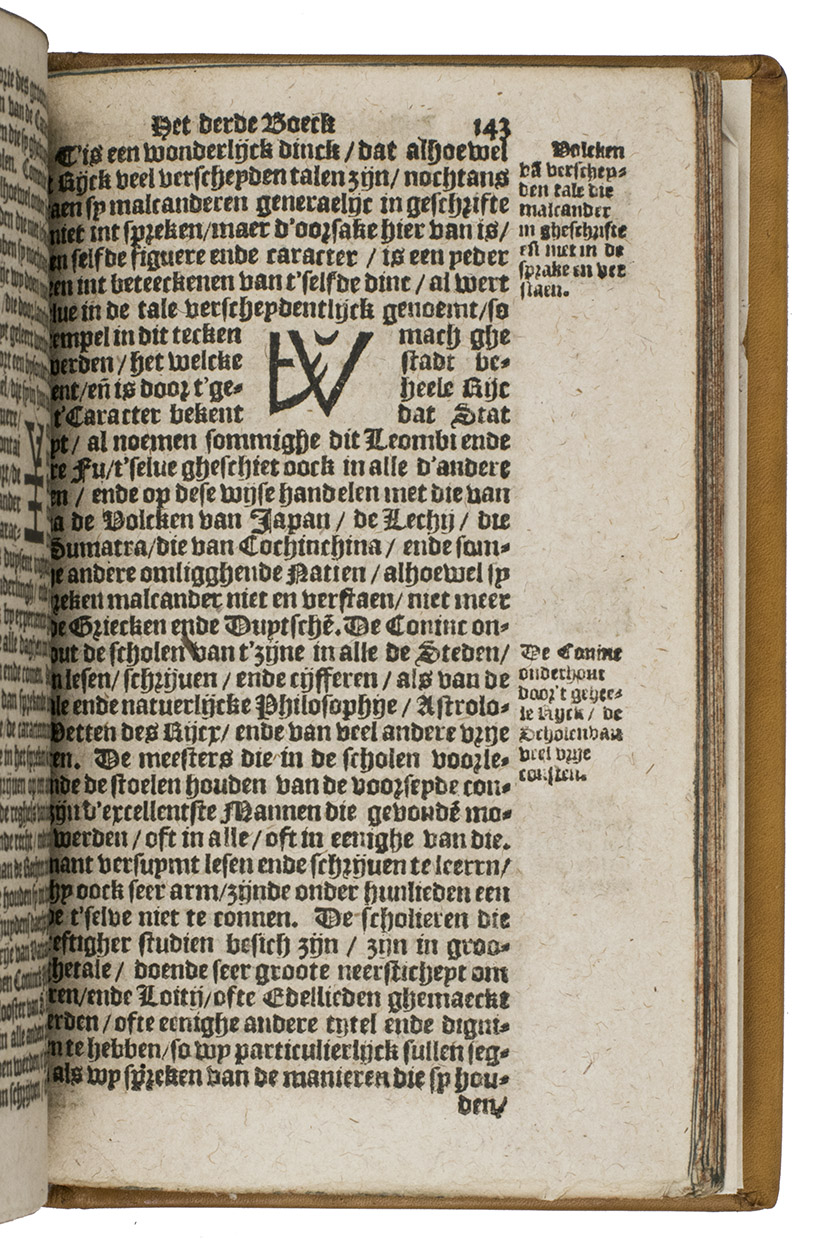 Het derde Boeck 143
T'is een wonderlijck dinck / dat alhoewel
Rijck veel verscheyden talen zijn / nochtans
aen sy malcanderen generaelijc in geschrifte
niet int spreken/maer d'oorsake hier van is/
en selfde figuere ende caracter / is een yeder
en int beteeckenen van t'selfde dinc / al wert
lue in de tale verscheydentlijck genoemt/so
empel in dit tecken mach ghe
verden / het welcke stadt be⸗
ent/eñ is door t'ge⸗ heele Rijc
t'Caracter bekent dat Stat
pt / al noemen sommighe dit Leombi ende
re Fu/t'selue gheschiet oock in alle d'andere
n / ende op dese wijse handelen met die van
a de Volcken van Japan / de Lechij / die
Sumatra/die van Cochinchina / ende som⸗
ie andere omligghende Natien / alhoewel sy
reken malcander niet en verstaen/ niet meer
de Griecken ende Duytschẽ. De Coninc on⸗
out de scholen van t'zijne in alle de Steden/
n lesen/ schrijuen / ende cijfferen / als van de
le ende natuerlijcke Philosophye / Astrolo⸗
Wetten des Rijcx/ ende van veel andere vrye
en. De meesters die in de scholen voorle⸗
nde de stoelen houden van de voorseyde con⸗
zijn d'excellentste Mannen die gevondẽ mo⸗
werden / oft in alle / oft in eenighe van die.
mant versuymt lesen ende schrijuen te leeren/
hy oock seer arm/zijnde onder hunlieden een
de t'selve niet te connen. De scholieren die
eftigher studien besich zijn / zijn in groo⸗
hetale / doende seer groote neersticheyt om
ren/ende Loitij/ofte Edellieden ghemaeckt
erden / ofte eenighe andere tytel ende digni⸗
n te hebben/so wy particulierlijck sullen seg⸗
als wy spreken van de manieren die sy hou⸗
den/
Volcken
vã verschey⸗
den tale die
malcander
in gheschrifte
eñ niet in de
sprake en ver
staen.
De Coninc
onderhout
door't gehee⸗
le Rijck / de
Scholen van
veel vrye
consten.